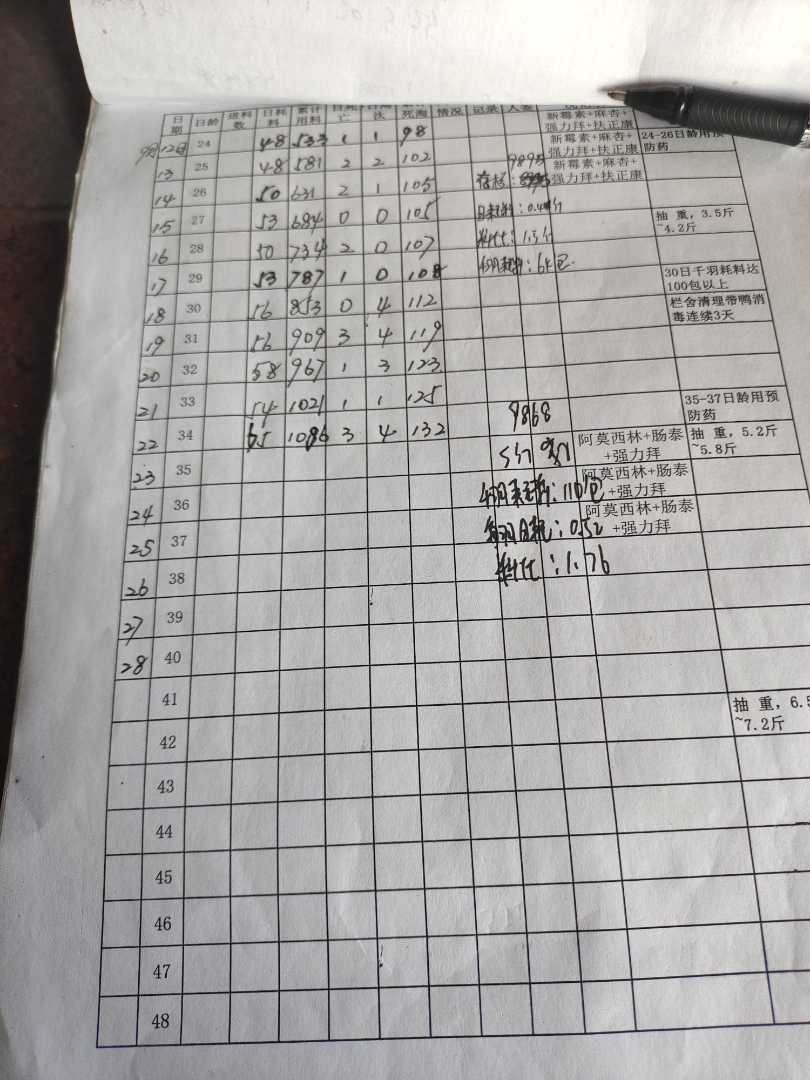 日期 日龄 进料数 日耗料 累计用料 死淘 情况 记录
9月12日 24 48 533 1 1 98 新霉素+麻杏+强力拜+扶正康 24-26日龄用预防药
13 25 48 581 2 2 102 9895 新霉素+麻杏+强力拜+扶正康
14 26 50 631 2 1 105 存栏: 新霉素+麻杏+强力拜+扶正康
15 27 53 684 0 0 105 抽 重,3.5斤~4.2斤
16 28 50 734 2 0 107 料比:
17 29 53 787 1 0 108 30日千羽耗料达100包以上
18 30 56 853 0 4 112 栏舍清理带鸭消毒连续3天
19 31 56 909 3 4 119
20 32 58 967 1 3 123
21 33 54 1021 1 1 125 9868 35-37日龄用预防药
22 34 65 1086 3 4 132 阿莫西林+肠泰+强力拜 抽 重,5.2斤~5.8斤
23 35
24 36 110包 阿莫西林+肠泰+强力拜
25 37 每羽日耗:0.52 阿莫西林+肠泰+强力拜
26 38 料比:1.76
27 39
28 40
41 抽 重,6.5~7.2斤
42
43
44
45
46
47
48